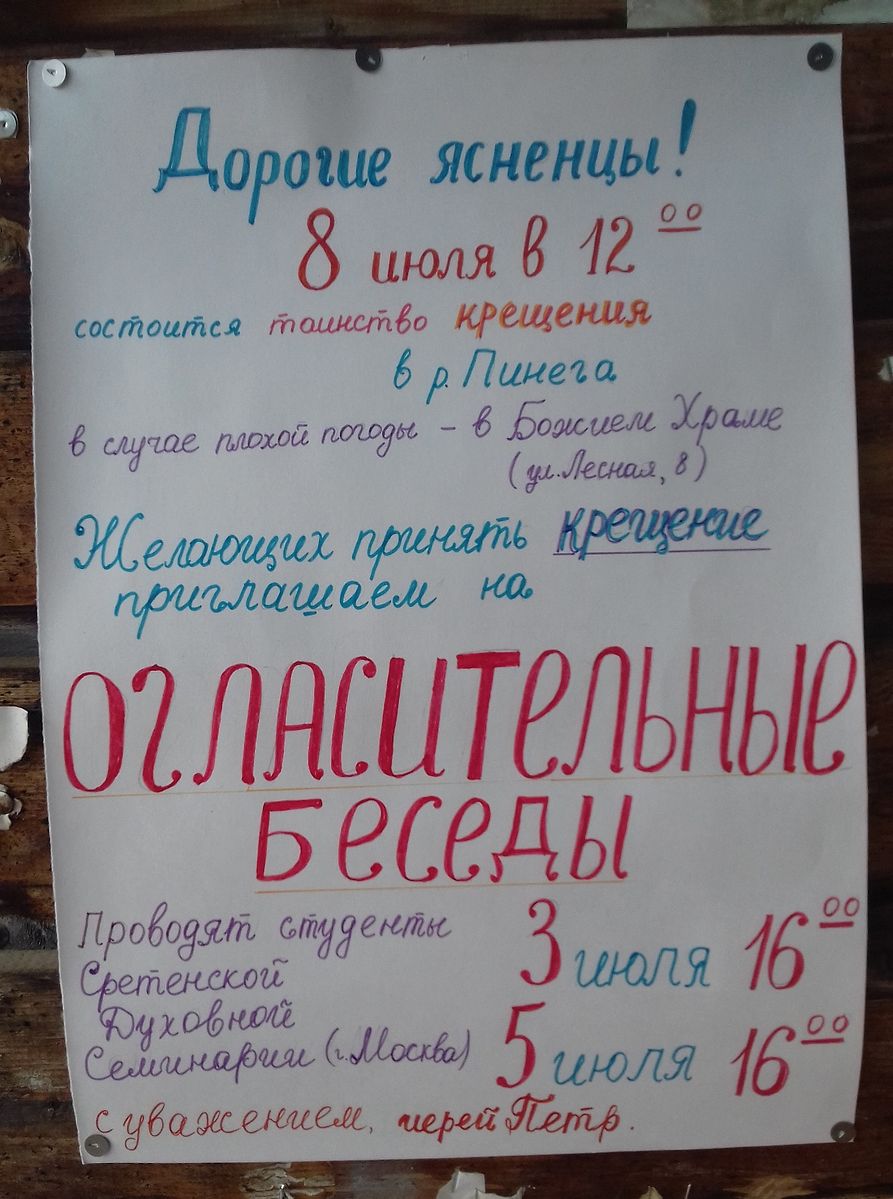 Дорогие ясненцы!
8 июля в 12 00
состоится таинство крещения
в р. Пинега
в случае плохой погоды – в Божием Храме
(ул. Лесная, 8)
Желающих принять крещение
приглашаем на
ОГЛАСИТЕЛЬНЫЕ
БЕСЕДЫ
Проводят студенты
Сретенской
Духовной
Семинарии (г. Москва)
3 июля 16 00
5 июля 16 00
с уважением, иерей Петр.